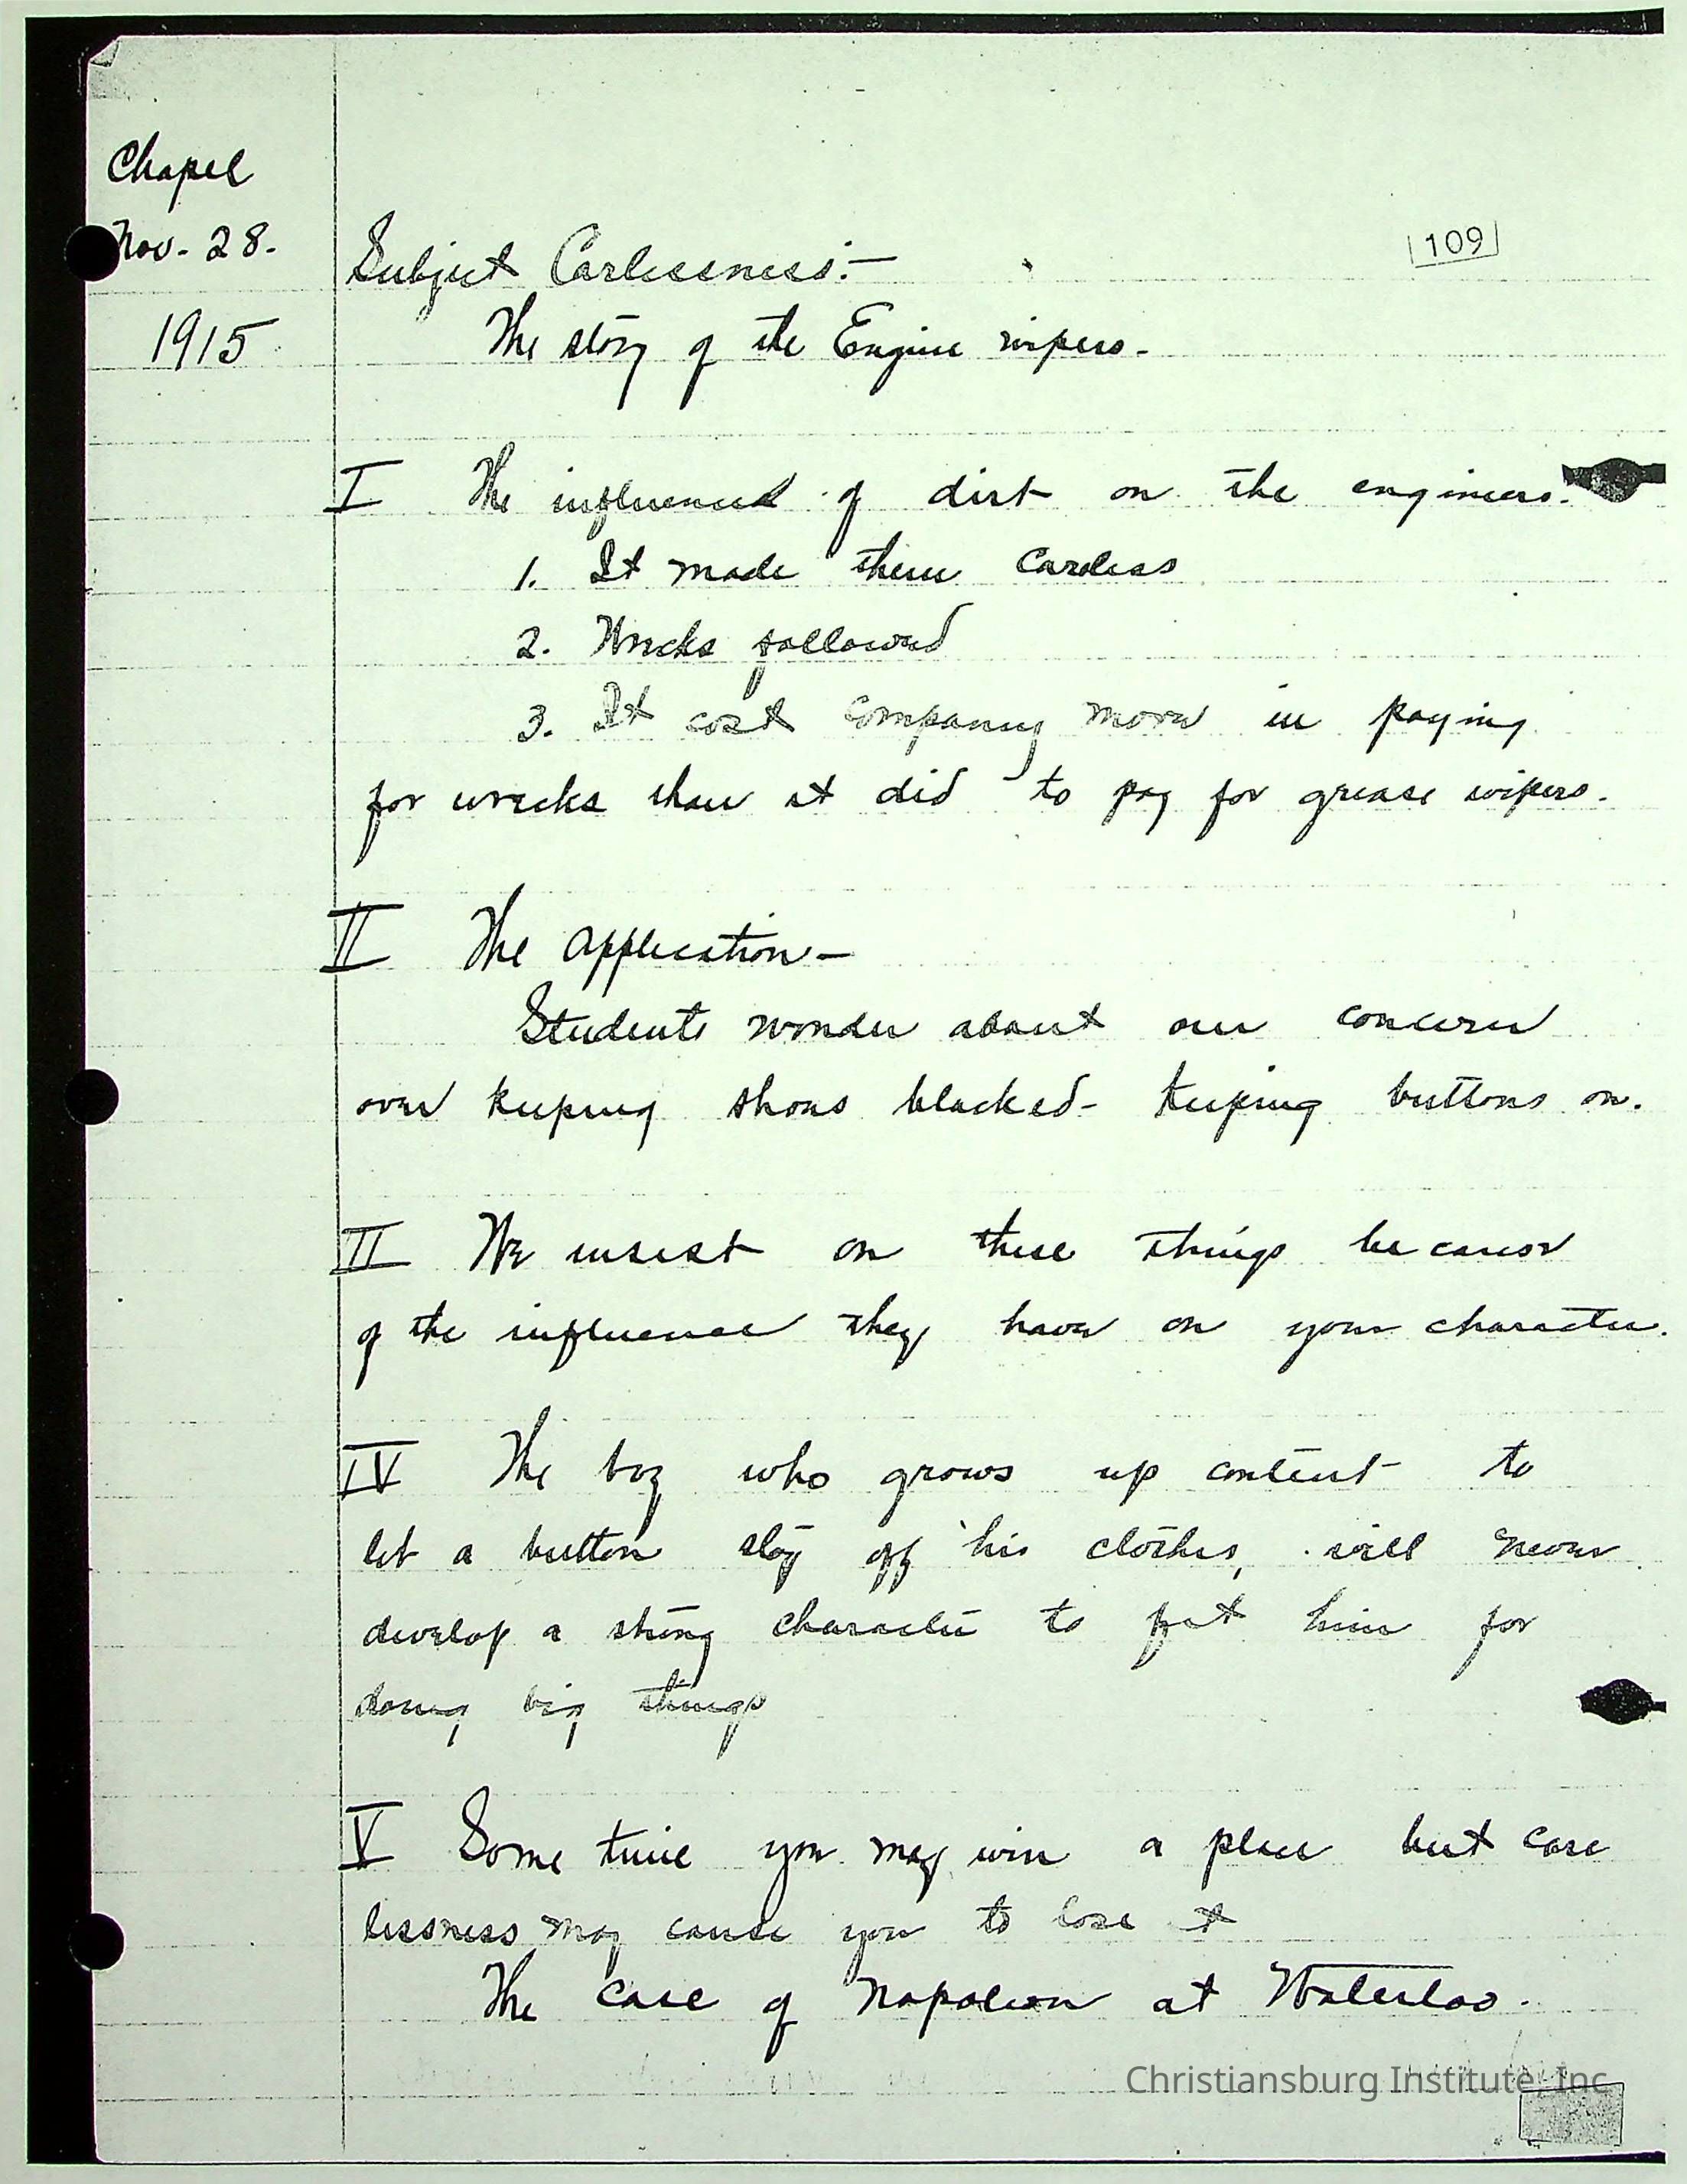 Chapel
Nov. 28.
1915
109
Subject Carlessness:—
The story of the Engine wipers.
I The influence of dirt on the engineers.
1. It made them careless
2. Wrecks followed
3. It cost company more in paying
for wrecks than it did to pay for grease wipers.
II The application—
Students wonder about our concern
over keeping shoes blacked- keeping buttons on.
II We insist on these things because
of the influence they have on your character.
IV The boy who grows up content to
let a button stay off his clothes, will never
develop a strong character to fit him for
doing big things
V Some time you may win a place but care
lessness may cause you to lose it
The case of Napoleon at Waterloo.
Christiansburg Institute, Inc